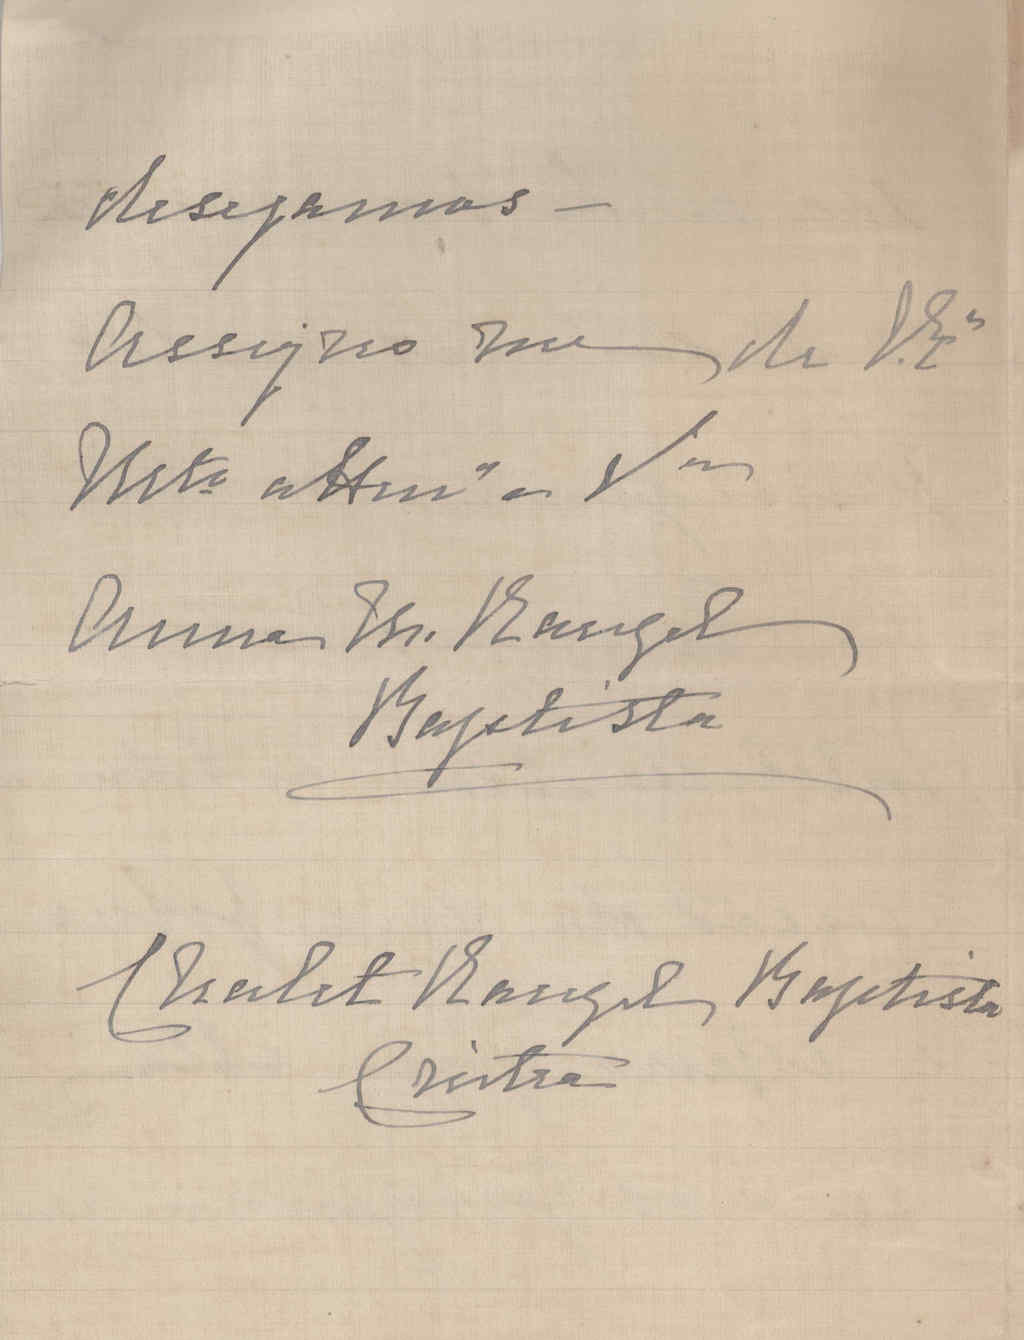 desejamos —
Assigno me de V. Ex.ª
Mt.ª attenᵗª e Vᵒʳª
Anna M. Rangel
Baptista
Chalet Rangel Baptista
Cintra